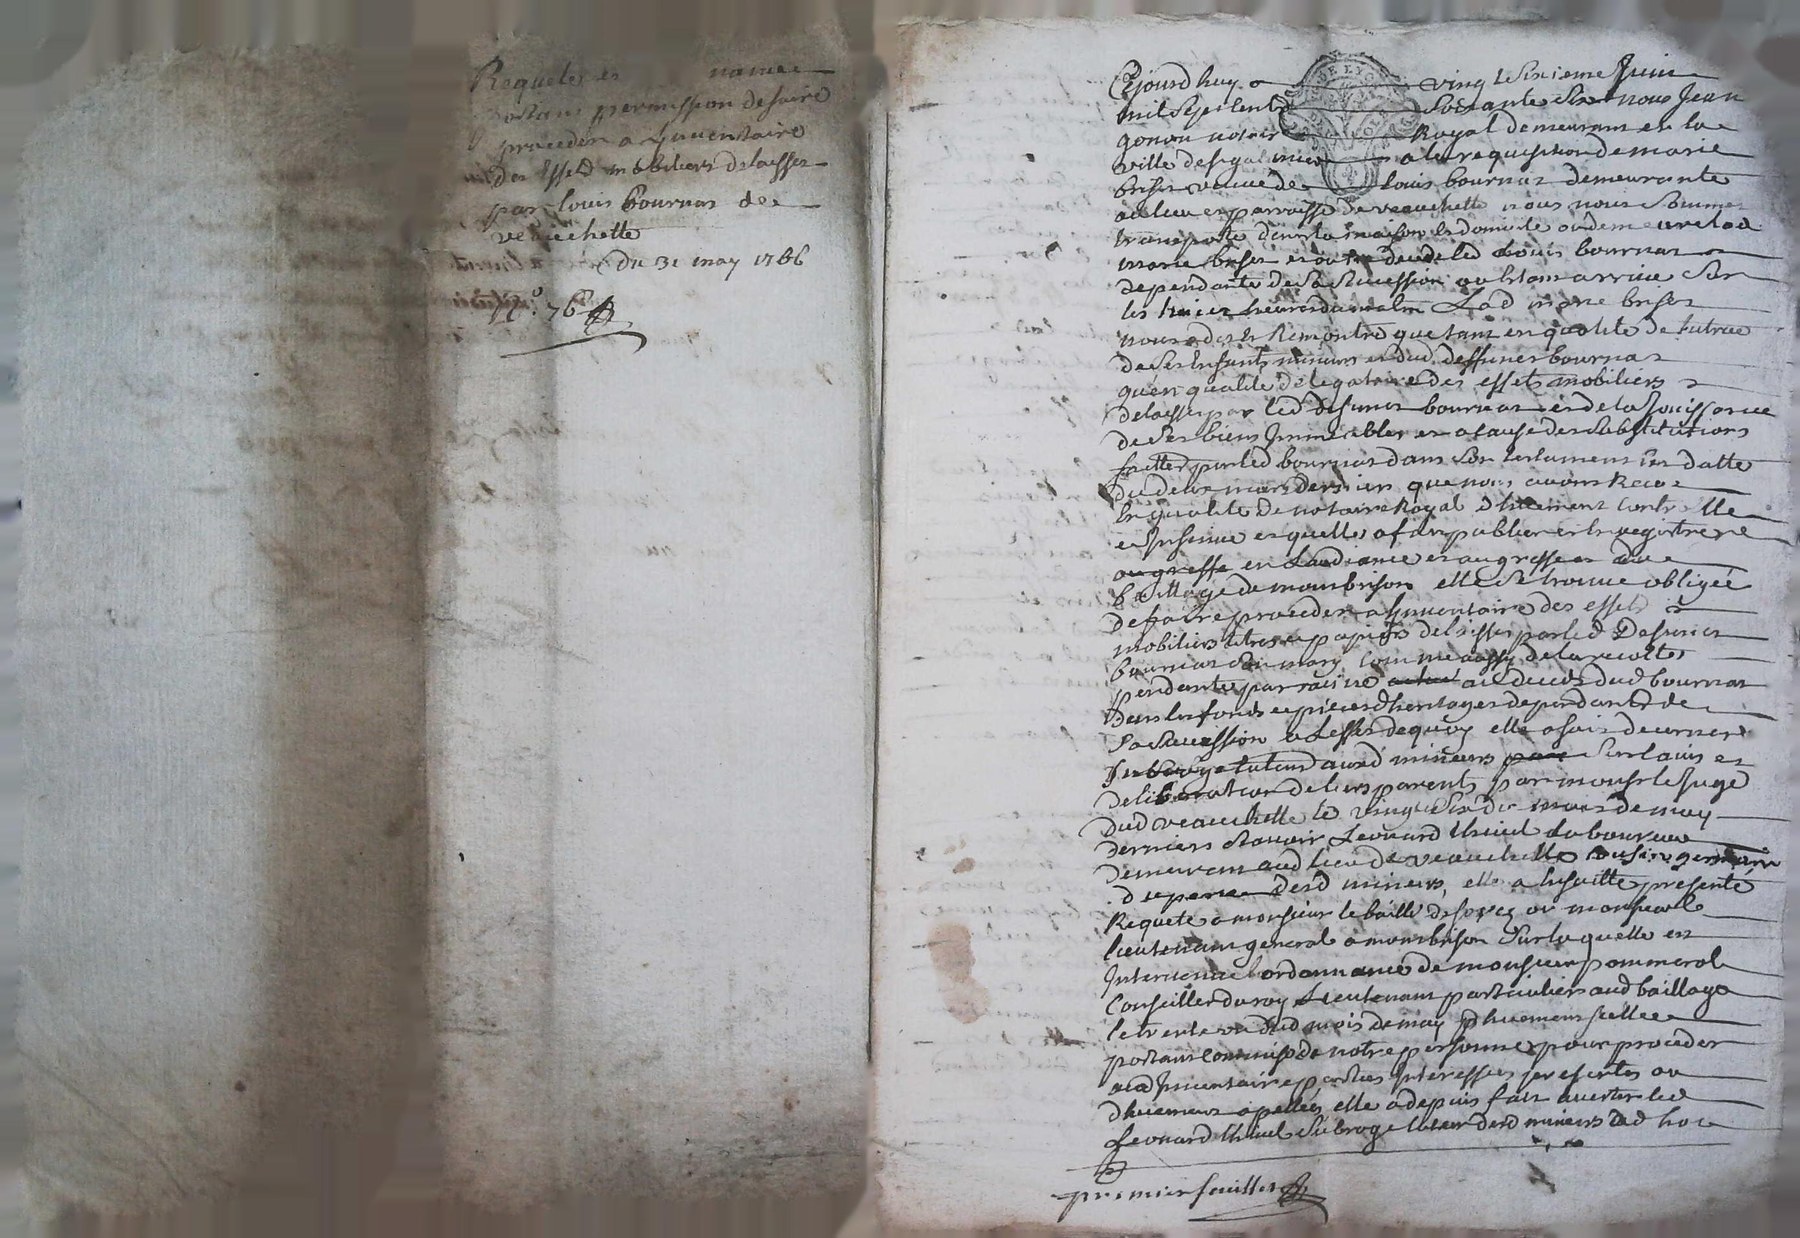 Requete et
portant permission de faire
proceder a Linventaire
des Effets mobiliers delaisses
par louis Bournat de
veauchette
Du 31 may 1766
76
Cejourdhuy vingt sixieme Juin
mil sept cent soixante six nous Jean
gonon notaire Royal demeurant en la
ville de st galmier a la requisition de marie
veuve de louis bournat demeurante
au lieu et parroisse de veauchette nous nous sommes
transporté dans la maison et domicile ou demeure lad
marie et ou est decedé led Louis bournat
dependante de sa succession ou estant arrivé sur
les heures du matin Lad marie
nous a dit et Remontré que tant en qualité de tutrice
de ses Enfants mineurs et dud deffunct bournat
quen qualité de legataire des effets mobiliers
delaissés par led defunct bournat et de la Jouissance
de ses biens Immeubles et a cause des substitutions
faittes par led bournat dans son testament en datte
du deux mars dernier que nous avons Recu
En qualité de notaire Royal dhuement controllé
et Insinué et quelle a fait publier et Enregistrer
au greffe en Laudiance et au greffe du
baillage de montbrison elle se trouve obligée
de faire proceder a Linventaire des effets
mobiliers titres et papiers delaissés par led Defunct
bournat son mary comme aussy de la recolte
pendante par racine au deces dud bournat
dans les fonds et pieces dheritages dependants de
sa succession a Leffet de quoy elle a fait decerner
subrogé tuteur auxd mineurs sur lavis et
deliberation de leurs parents par monsr le Juge
dud veauchette le vingt six du mois de may
dernier scavoir Leonard thiel laboureur
demeurant aud lieu de veauchette cousin germain
desd mineurs, elle a Ensuitte presenté
Requete a monsieur le bailli de forez ou monsieur le
lieutenant general a montbrison sur laquelle est
Intervenue lordonnance de monsieur pommerol
Conseiller du roy Lieutenant particulier aud baillage
le trente un dud mois de may dhuement scellée
portant commission de notre personne pour proceder
aud Inventaire parties Interessées presentes ou
dhuement apellées elle a depuis fait avertir led
Leonard thiel subrogé tuteur desd mineurs ad hoc
premier feuillet